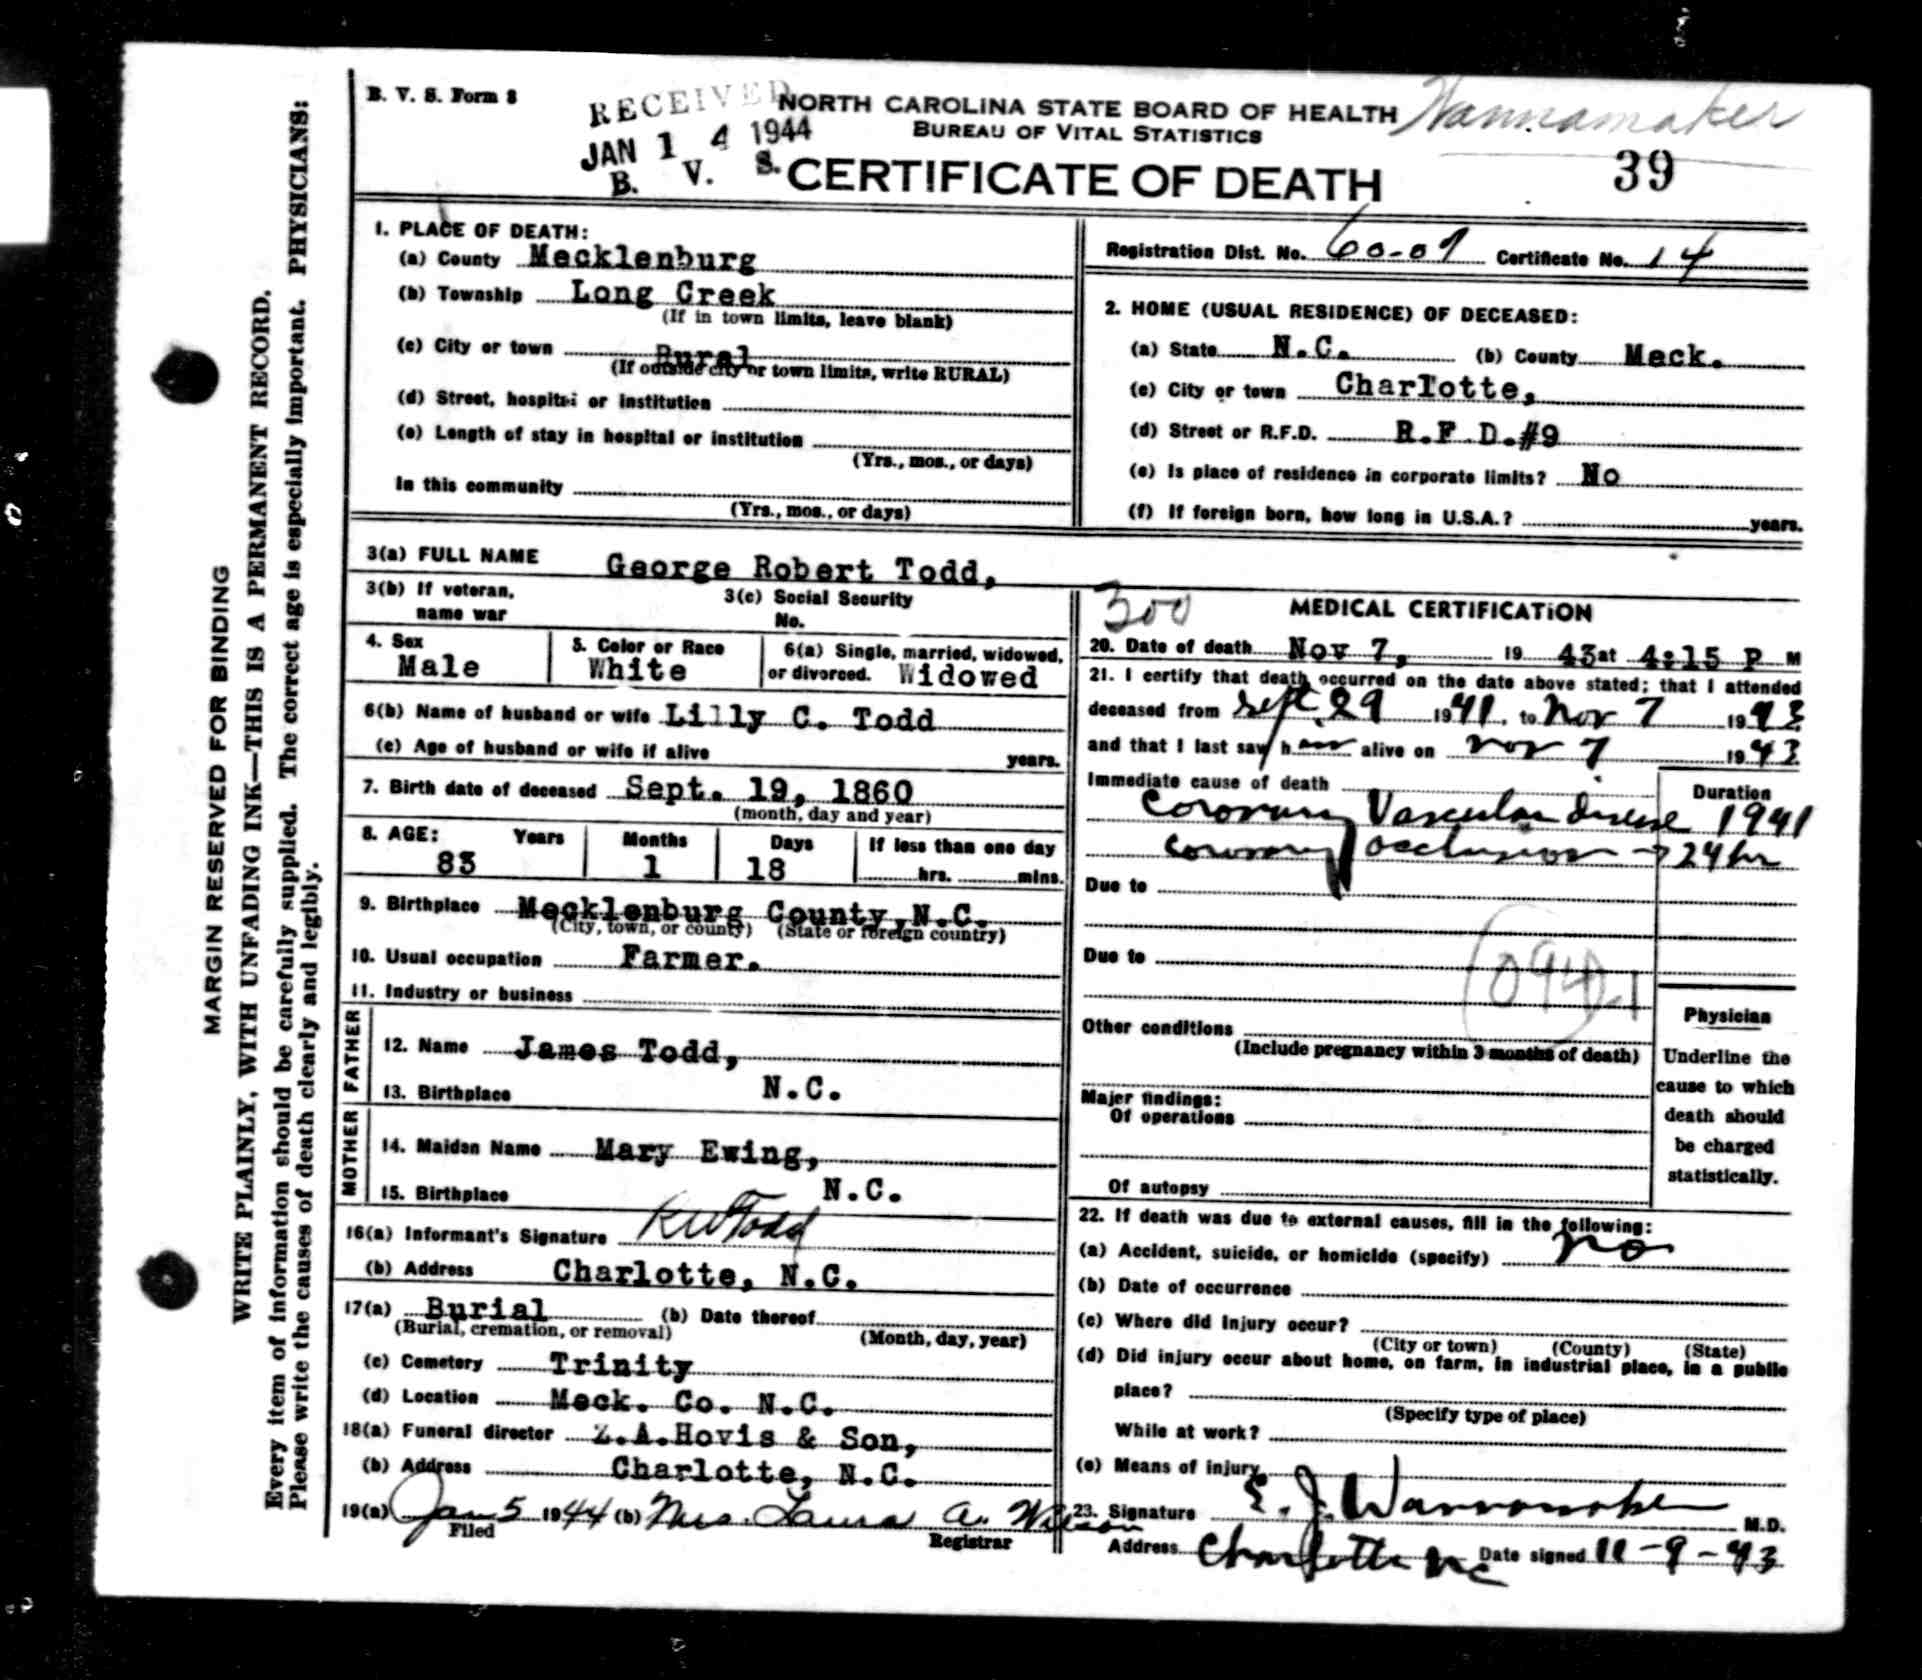 B. V. S. Form 8
RECEIVED
JAN 14 1944
B. V. S.
NORTH CAROLINA STATE BOARD OF HEALTH
BUREAU OF VITAL STATISTICS
CERTIFICATE OF DEATH
Wannamaker
39
MARGIN RESERVED FOR BINDING
WRITE PLAINLY, WITH UNFADING INK—THIS IS A PERMANENT RECORD.
Every item of information should be carefully supplied. The correct age is especially important. PHYSICIANS:
Please write the causes of death clearly and legibly.
1. PLACE OF DEATH:
(a) County Mecklenburg
(b) Township Long Creek
(If in town limits, leave blank)
(c) City or town Rural
(If outside city or town limits, write RURAL)
(d) Street, hospital or institution
(e) Length of stay in hospital or institution
(Yrs., mos., or days)
In this community
(Yrs., mos., or days)
Registration Dist. No. 60-09 Certificate No. 14
2. HOME (USUAL RESIDENCE) OF DECEASED:
(a) State N.C. (b) County Meck.
(c) City or town Charlotte,
(d) Street or R.F.D. R.F.D.#9
(e) Is place of residence in corporate limits? No
(f) If foreign born, how long in U.S.A.? years.
3(a) FULL NAME George Robert Todd,
3(b) If veteran, name war
3(c) Social Security No.
4. Sex Male
5. Color or Race White
6(a) Single, married, widowed, or divorced. Widowed
6(b) Name of husband or wife Lilly C. Todd
(c) Age of husband or wife if alive years.
7. Birth date of deceased Sept. 19, 1860
(month, day and year)
8. AGE: Years Months Days If less than one day
83 1 18 hrs. mins.
9. Birthplace Mecklenburg County, N.C.
(City, town, or county) (State or foreign country)
10. Usual occupation Farmer.
11. Industry or business
FATHER
12. Name James Todd,
13. Birthplace N.C.
MOTHER
14. Maiden Name Mary Ewing,
15. Birthplace N.C.
16(a) Informant's Signature R W Todd
(b) Address Charlotte, N.C.
17(a) Burial (b) Date thereof
(Burial, cremation, or removal) (Month, day, year)
(c) Cemetery Trinity
(d) Location Meck. Co. N.C.
18(a) Funeral director Z.A.Hovis & Son,
(b) Address Charlotte, N.C.
19(a) Jan 5 1944 (b) Mrs. Laura A. Wilson
Filed Registrar
300
MEDICAL CERTIFICATION
20. Date of death Nov 7, 19 43 at 4:15 P M
21. I certify that death occurred on the date above stated; that I attended
deceased from Sept. 29 1941, to Nov 7 1943
and that I last saw h im alive on Nov 7 1943
Immediate cause of death Duration
Coronary Vascular disease 1941
Coronary occlusion → 24 hr
Due to
Due to
Other conditions
(Include pregnancy within 3 months of death)
Major findings:
Of operations
Of autopsy
Physician
Underline the
cause to which
death should
be charged
statistically.
22. If death was due to external causes, fill in the following:
(a) Accident, suicide, or homicide (specify) no
(b) Date of occurrence
(c) Where did injury occur?
(City or town) (County) (State)
(d) Did injury occur about home, on farm, in industrial place, in a public
place?
(Specify type of place)
While at work?
(e) Means of injury
23. Signature E. J. Wannamaker M.D.
Address Charlotte NC Date signed 11-9-43